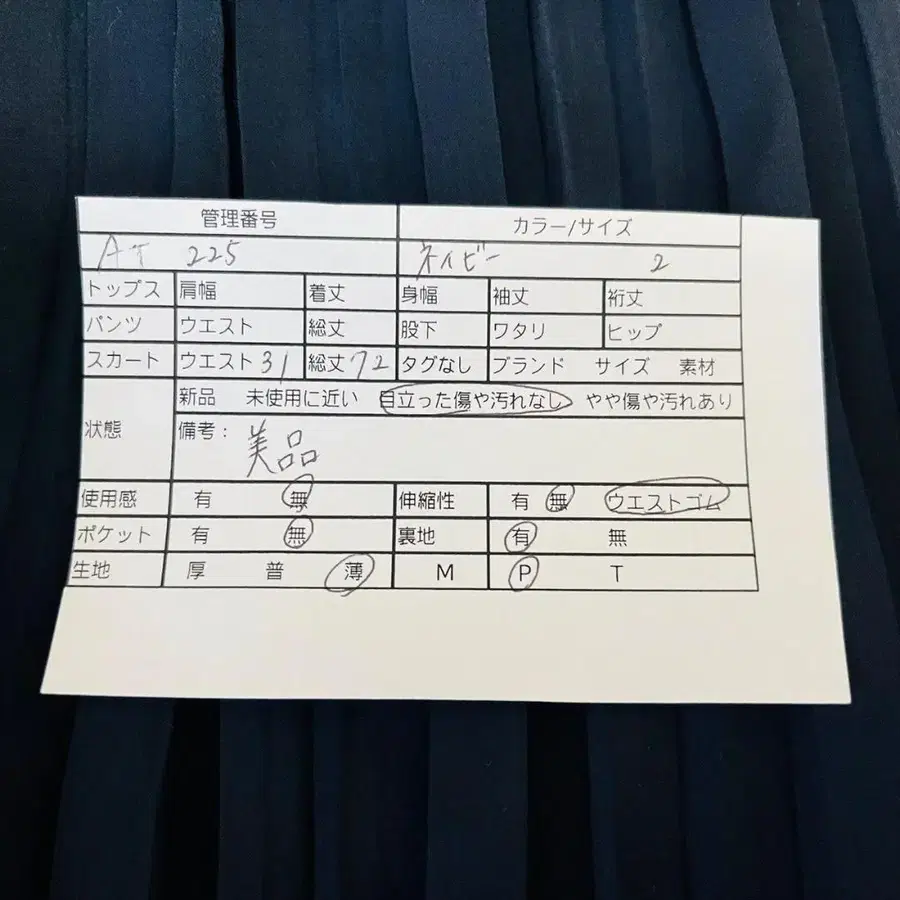 管理番号 カラー/サイズ
AT 225 ネイビー 2
トップス 肩幅 着丈 身幅 袖丈 裄丈
パンツ ウエスト 総丈 股下 ワタリ ヒップ
スカート ウエスト 31 総丈 72 タグなし ブランド サイズ 素材
状態 新品 未使用に近い 目立った傷や汚れなし やや傷や汚れあり
備考： 美品
使用感 有 無 伸縮性 有 無 ウエストゴム
ポケット 有 無 裏地 有 無
生地 厚 普 薄 M P T